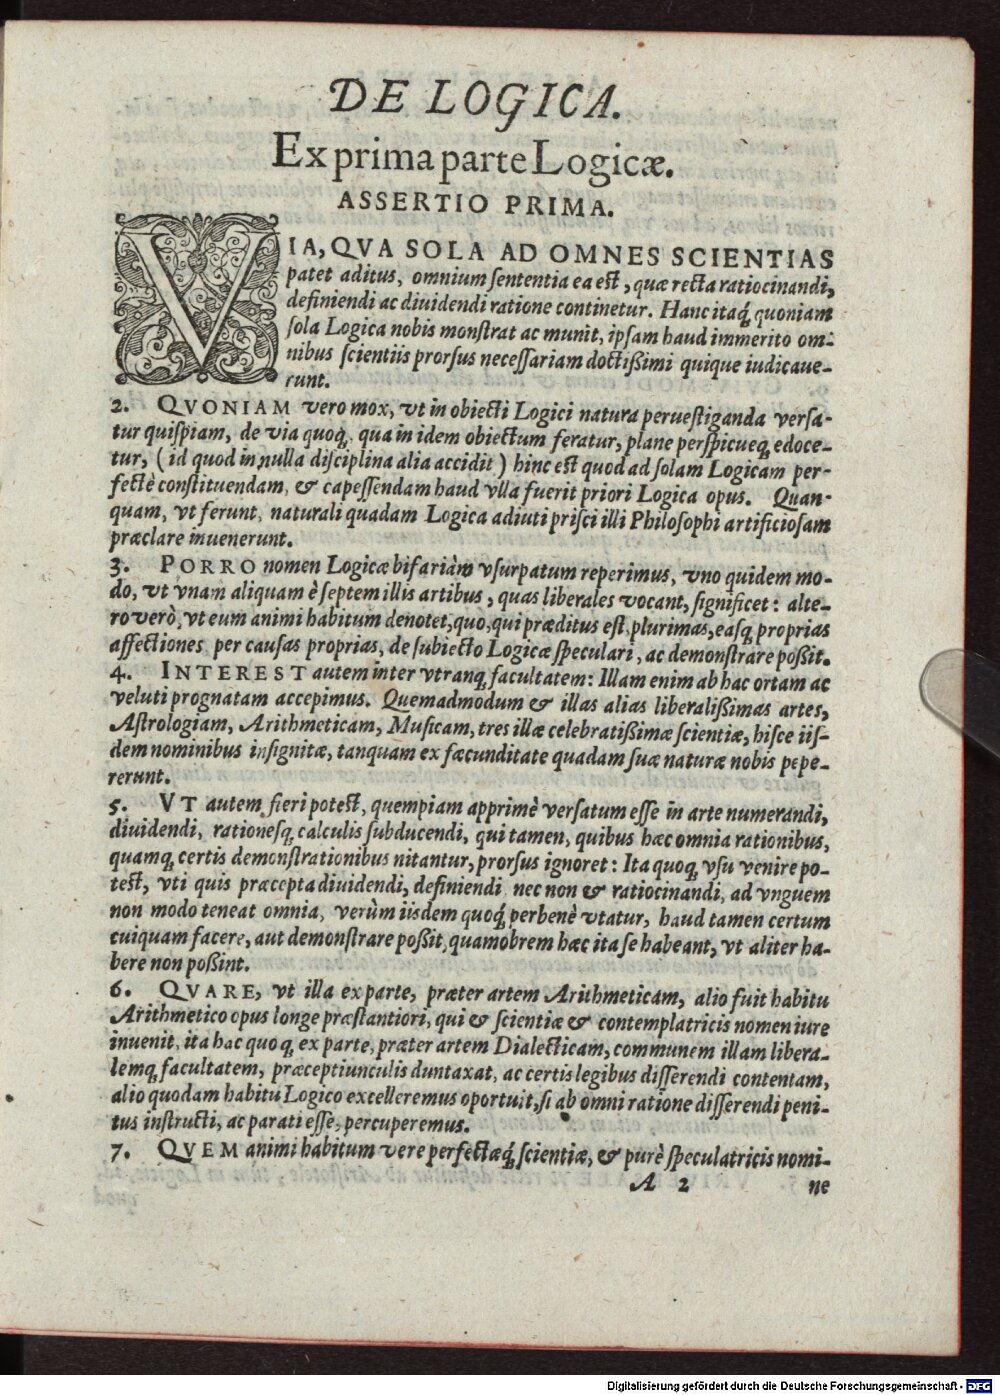 DE LOGICA.
Ex prima parte Logicæ.
ASSERTIO PRIMA.
VIA, QVA SOLA AD OMNES SCIENTIAS
patet aditus, omnium sententia ea est, quæ recta ratiocinandi,
definiendi ac diuidendi ratione continetur. Hanc itaq́, quoniam
sola Logica nobis monstrat ac munit, ipsam haud immerito om-
nibus scientiis prorsus necessariam doctißimi quique iudicaue-
runt.
2. QVONIAM vero mox, vt in obiecti Logici natura peruestiganda versa-
tur quispiam, de via quoq́, qua in idem obiectum feratur, plane perspicueq́, edoce-
tur, (id quod in nulla disciplina alia accidit) hinc est quod ad solam Logicam per-
fectè constituendam, & capessendam haud vlla fuerit priori Logica opus. Quan-
quam, vt ferunt, naturali quadam Logica adiuti prisci illi Philosophi artificiosam
præclare inuenerunt.
3. PORRO nomen Logicæ bifariàm vsurpatum reperimus, vno quidem mo-
do, vt vnam aliquam è septem illis artibus, quas liberales vocant, significet: alte-
ro verò, vt eum animi habitum denotet, quo, qui præditus est, plurimas, easq́ proprias
affectiones per causas proprias, de subiecto Logicæ speculari, ac demonstrare poßit.
4. INTEREST autem inter vtranq́, facultatem: Illam enim ab hac ortam ac
veluti prognatam accepimus. Quemadmodum & illas alias liberalißimas artes,
Astrologiam, Arithmeticam, Musicam, tres illæ celebratißimæ scientiæ, hisce iis-
dem nominibus insignitæ, tanquam ex fæcunditate quadam suæ naturæ nobis pepe-
rerunt.
5. VT autem fieri potest, quempiam apprimè versatum esse in arte numerandi,
diuidendi, rationesq́, calculis subducendi, qui tamen, quibus hæc omnia rationibus,
quamq́, certis demonstrationibus nitantur, prorsus ignoret: Ita quoq́, vsu venire po-
test, vti quis præcepta diuidendi, definiendi, nec non & ratiocinandi, ad vnguem
non modo teneat omnia, verùm iisdem quoq́, perbenè vtatur, haud tamen certum
cuiquam facere, aut demonstrare poßit, quamobrem hæc ita se habeant, vt aliter ha-
bere non poßint.
6. QVARE, vt illa ex parte, præter artem Arithmeticam, alio fuit habitu
Arithmetico opus longe præstantiori, qui & scientiæ & contemplatricis nomen iure
inuenit, ita hac quoq́, ex parte, præter artem Dialecticam, communem illam libera-
lemq́, facultatem, præceptiunculis duntaxat, ac certis legibus disserendi contentam,
alio quodam habitu Logico excelleremus oportuit, si ab omni ratione disserendi peni-
tus instructi, ac parati esse, percuperemus.
7. QVEM animi habitum vere perfectæq́, scientiæ, & purè speculatricis nomi-
A 2 ne
Digitalisierung gefördert durch die Deutsche Forschungsgemeinschaft - DFG